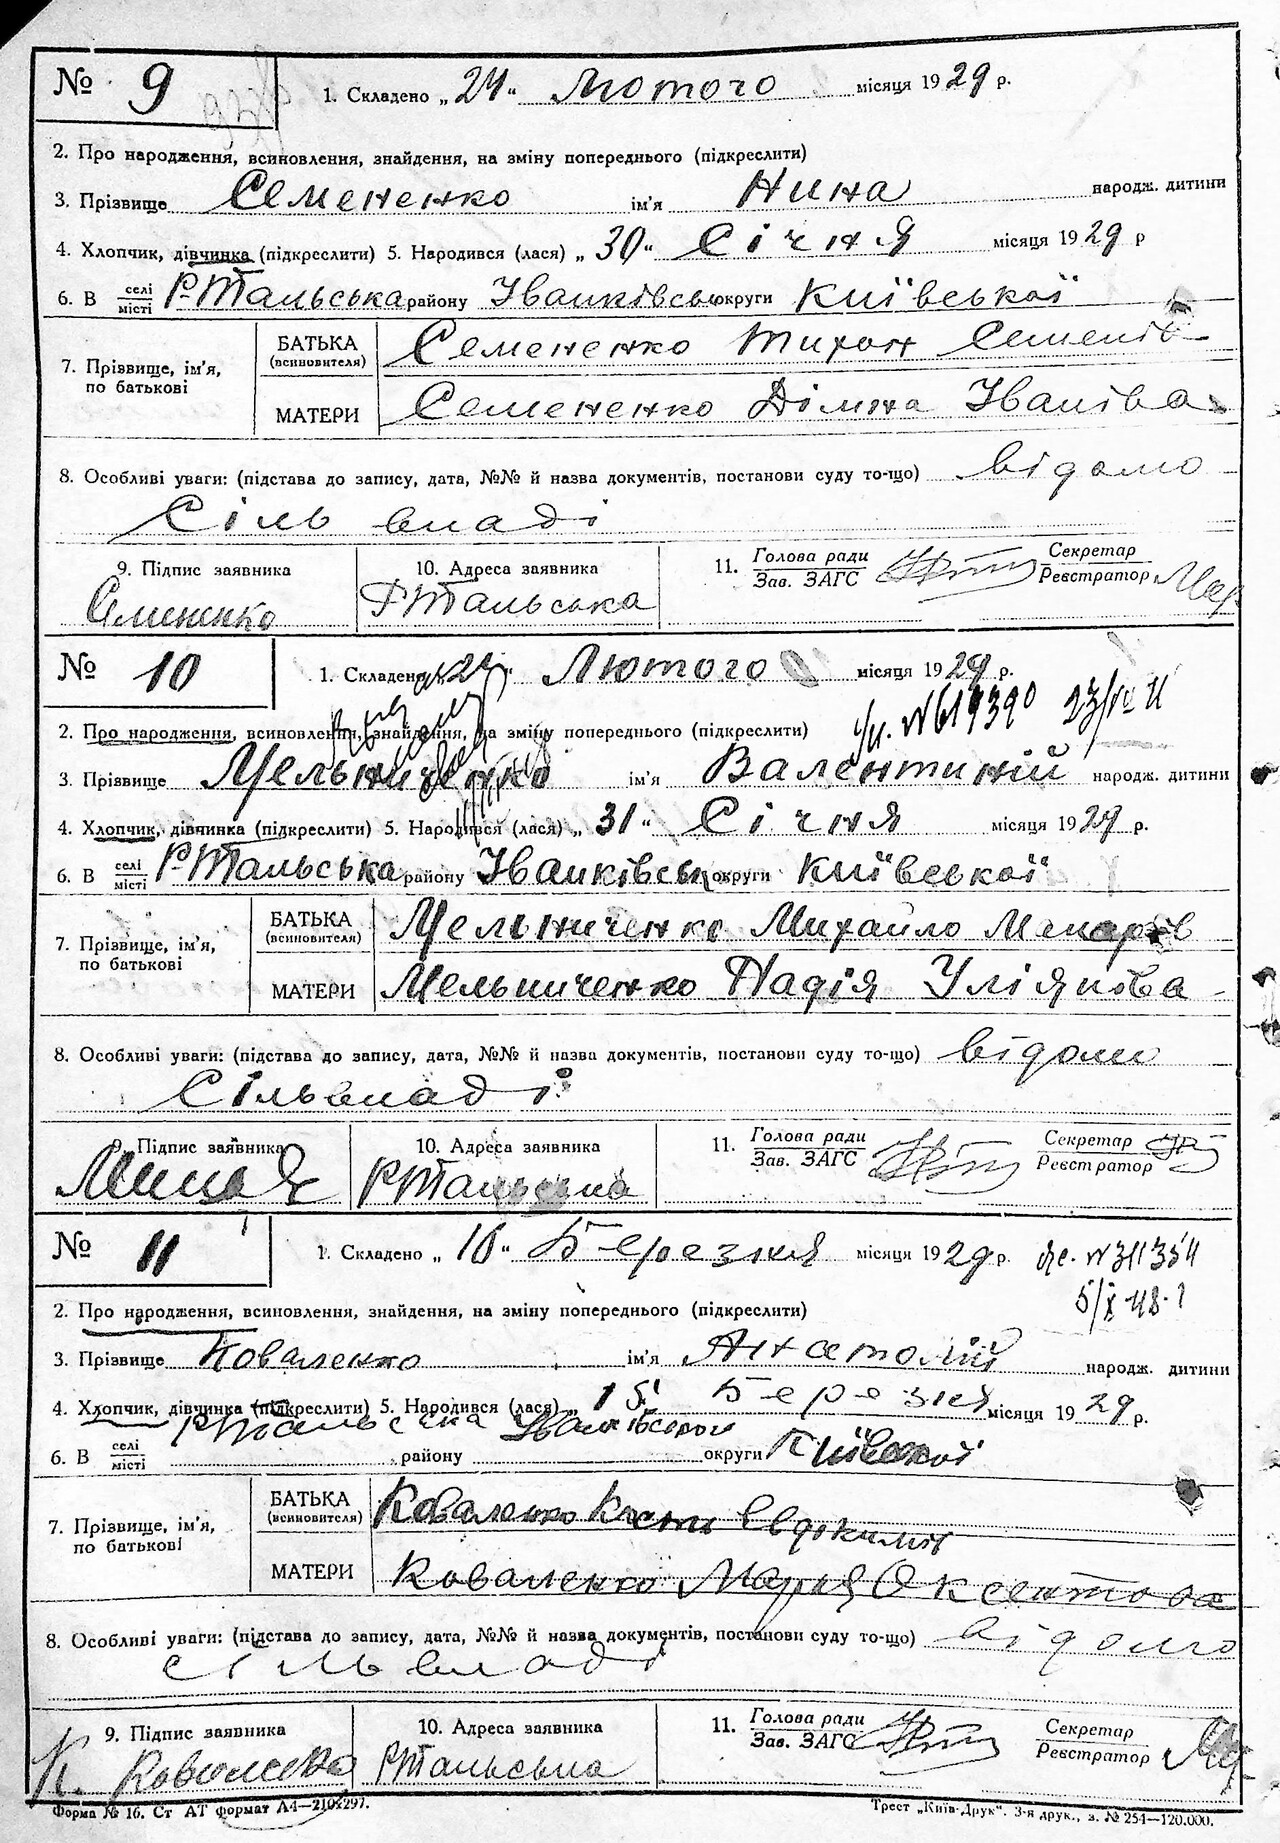 № 9 1. Складено „24“ Лютого місяця 1929 р.
2. Про народження, всиновлення, знайдення, на зміну попереднього (підкреслити)
3. Прізвище Семененко ім'я Нина народж. дитини
4. Хлопчик, дівчинка (підкреслити) 5. Народився (лася) „30“ Січня місяця 1929 р
6. В селі/місті Р-Тальська району Іванківськ округи Київської
7. Прізвище, ім'я, по батькові
БАТЬКА (всиновителя) Семененко Тихон Семенів
МАТЕРИ Семененко Іванівна
8. Особливі уваги: (підстава до запису, дата, №№ й назва документів, постанови суду то-що) відомо
Сіль владі
9. Підпис заявника 10. Адреса заявника 11. Голова ради Секретар
Зав. ЗАГС Реєстратор
Семененко РТальська
№ 10 1. Складено „24“ Лютого місяця 1929 р.
2. Про народження, всиновлення, знайдення, на зміну попереднього (підкреслити)
3. Прізвище Мельниченко ім'я Валентиній народж. дитини
4. Хлопчик, дівчинка (підкреслити) 5. Народився (лася) „31“ Січня місяця 1929 р.
6. В селі/місті Р-Тальська району Іванківськ округи Київської
7. Прізвище, ім'я, по батькові
БАТЬКА (всиновителя) Мельниченко Михайло Макарів
МАТЕРИ Мельниченко Надія Улянова
8. Особливі уваги: (підстава до запису, дата, №№ й назва документів, постанови суду то-що) відомо
Сільвладі
9. Підпис заявника 10. Адреса заявника 11. Голова ради Секретар
Зав. ЗАГС Реєстратор
РТальська
№ 11 1. Складено „16“ Березня місяця 1929 р. № 311354
2. Про народження, всиновлення, знайдення, на зміну попереднього (підкреслити)
3. Прізвище Коваленко ім'я Анатолій народж. дитини
4. Хлопчик, дівчинка (підкреслити) 5. Народився (лася) „15“ Березня місяця 1929 р.
6. В селі/місті РТальська району Іванківської округи Київської
7. Прізвище, ім'я, по батькові
БАТЬКА (всиновителя) Коваленко Евдокимів
МАТЕРИ Коваленко Марія Оксентова
8. Особливі уваги: (підстава до запису, дата, №№ й назва документів, постанови суду то-що) відомо
сільвладі
9. Підпис заявника 10. Адреса заявника 11. Голова ради Секретар
Зав. ЗАГС Реєстратор
К. Коваленко РТальська
Форма № 16. Ст АТ формат А4—210х297. Трест „Київ-Друк“. 3-я друк., з. № 254—120.000.